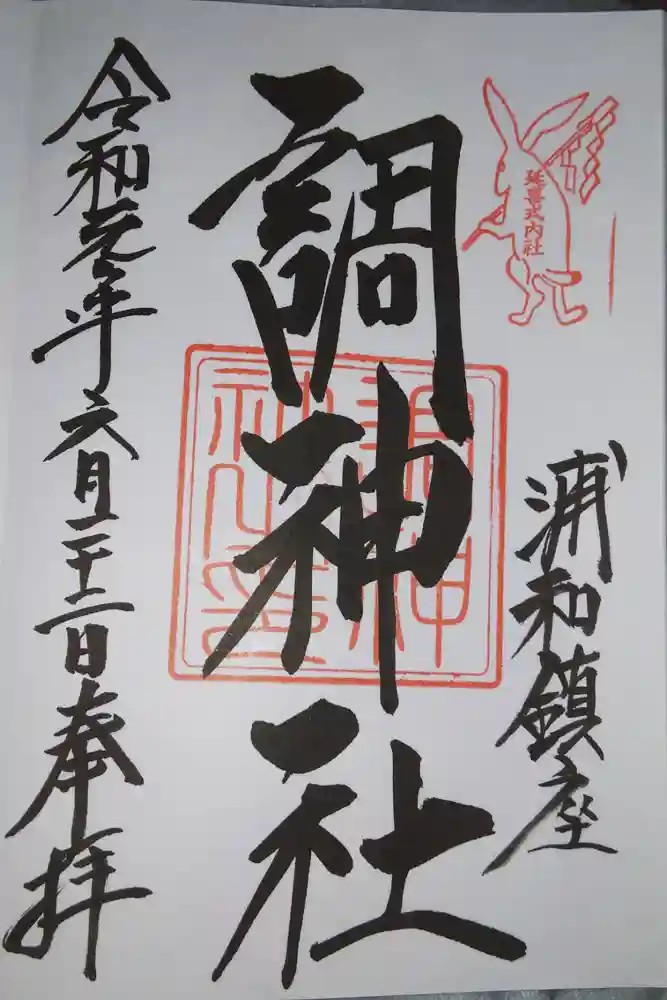 延喜式内社
浦和鎮座
調神社
調神
社之印
令和元年六月二十二日奉拝